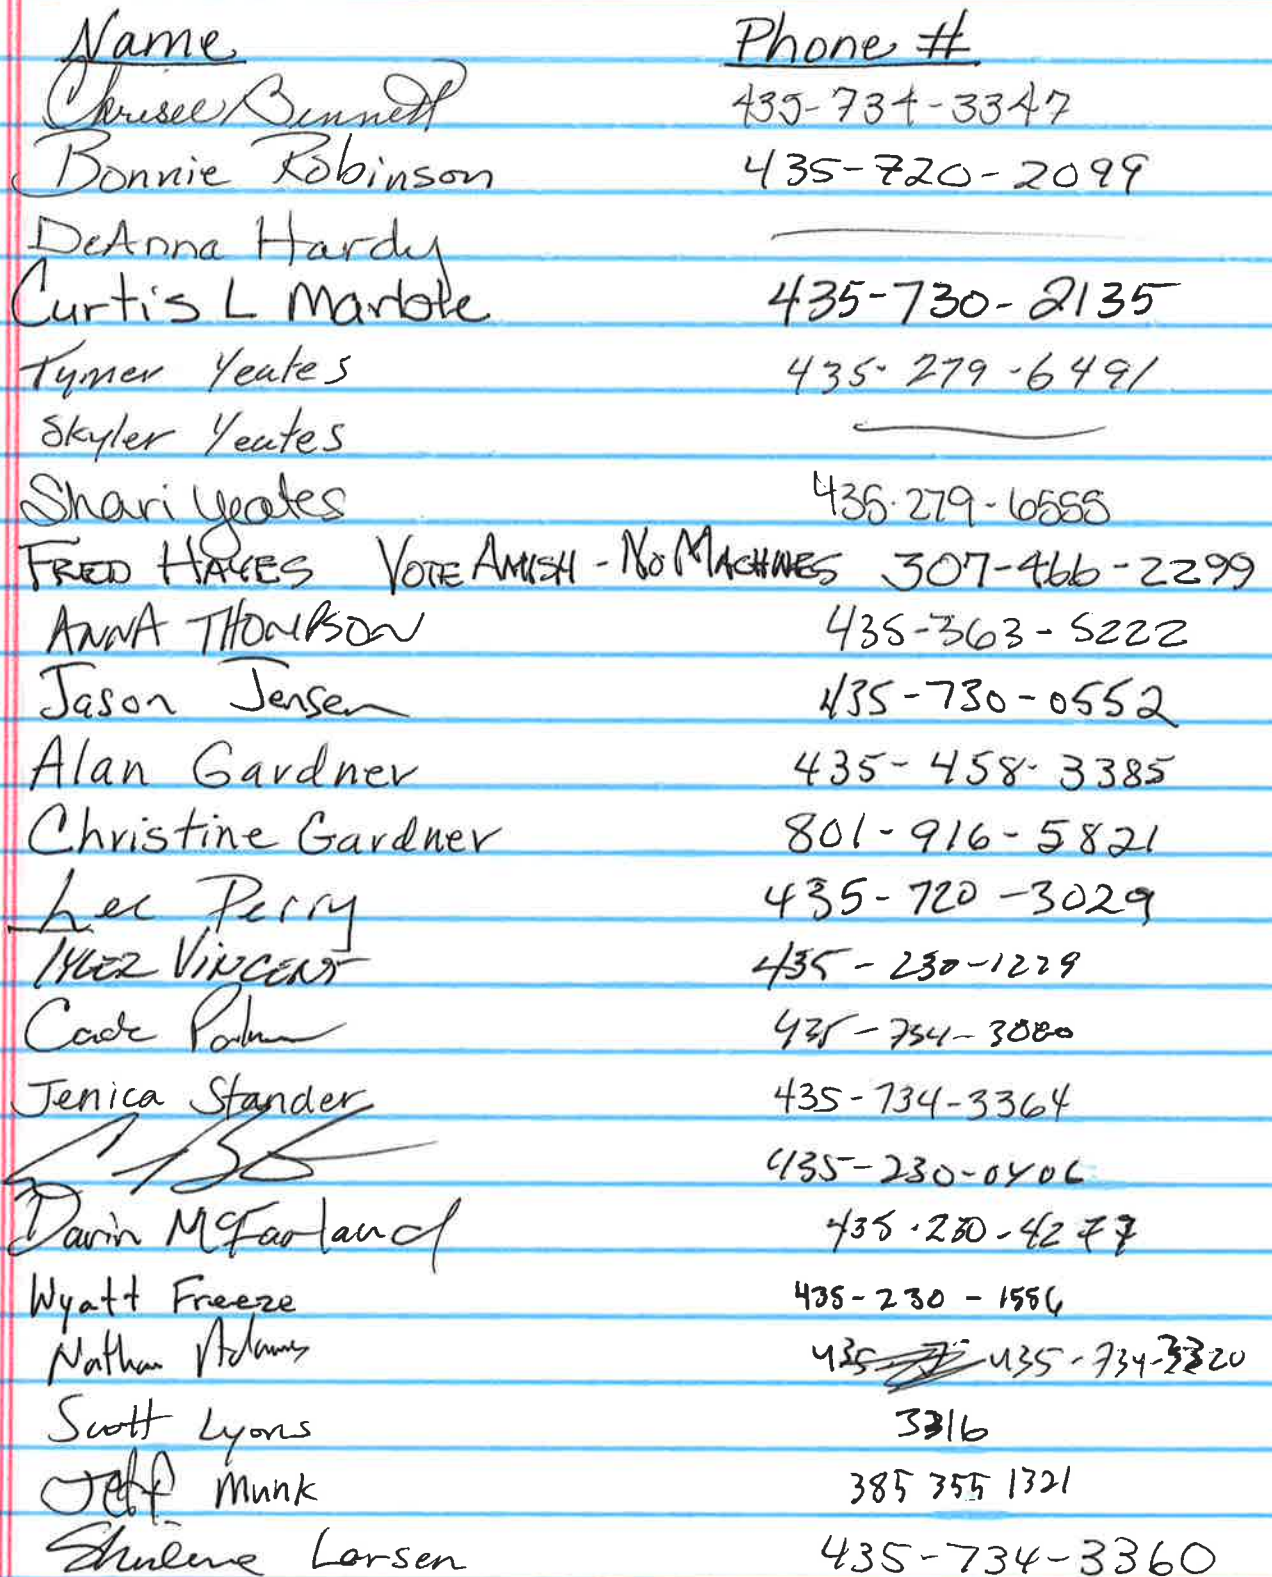 Name Phone #
Chrisee Bennett 435-734-3347
Bonnie Robinson 435-720-2099
DeAnna Hardy
Curtis L Marble 435-730-2135
Tymer Yeates 435-279-6491
Skyler Yeates
Shari Yeates 435-279-6555
FRED HAYES VOTE AMISH - NO MACHINES 307-466-2299
ANNA THOMPSON 435-363-5222
Jason Jensen 435-730-0552
Alan Gardner 435-458-3385
Christine Gardner 801-916-5821
Lee Perry 435-720-3029
TYLER VINCENT 435-230-1229
Cade Palmer 435-734-3080
Jenica Stander 435-734-3364
435-230-0406
Darin McFarland 435-230-4277
Wyatt Freeze 435-230-1556
Nathan Adams 435 435-734-3320
Scott Lyons 3316
Jeff Munk 385 355 1321
Shulene Larsen 435-734-3360